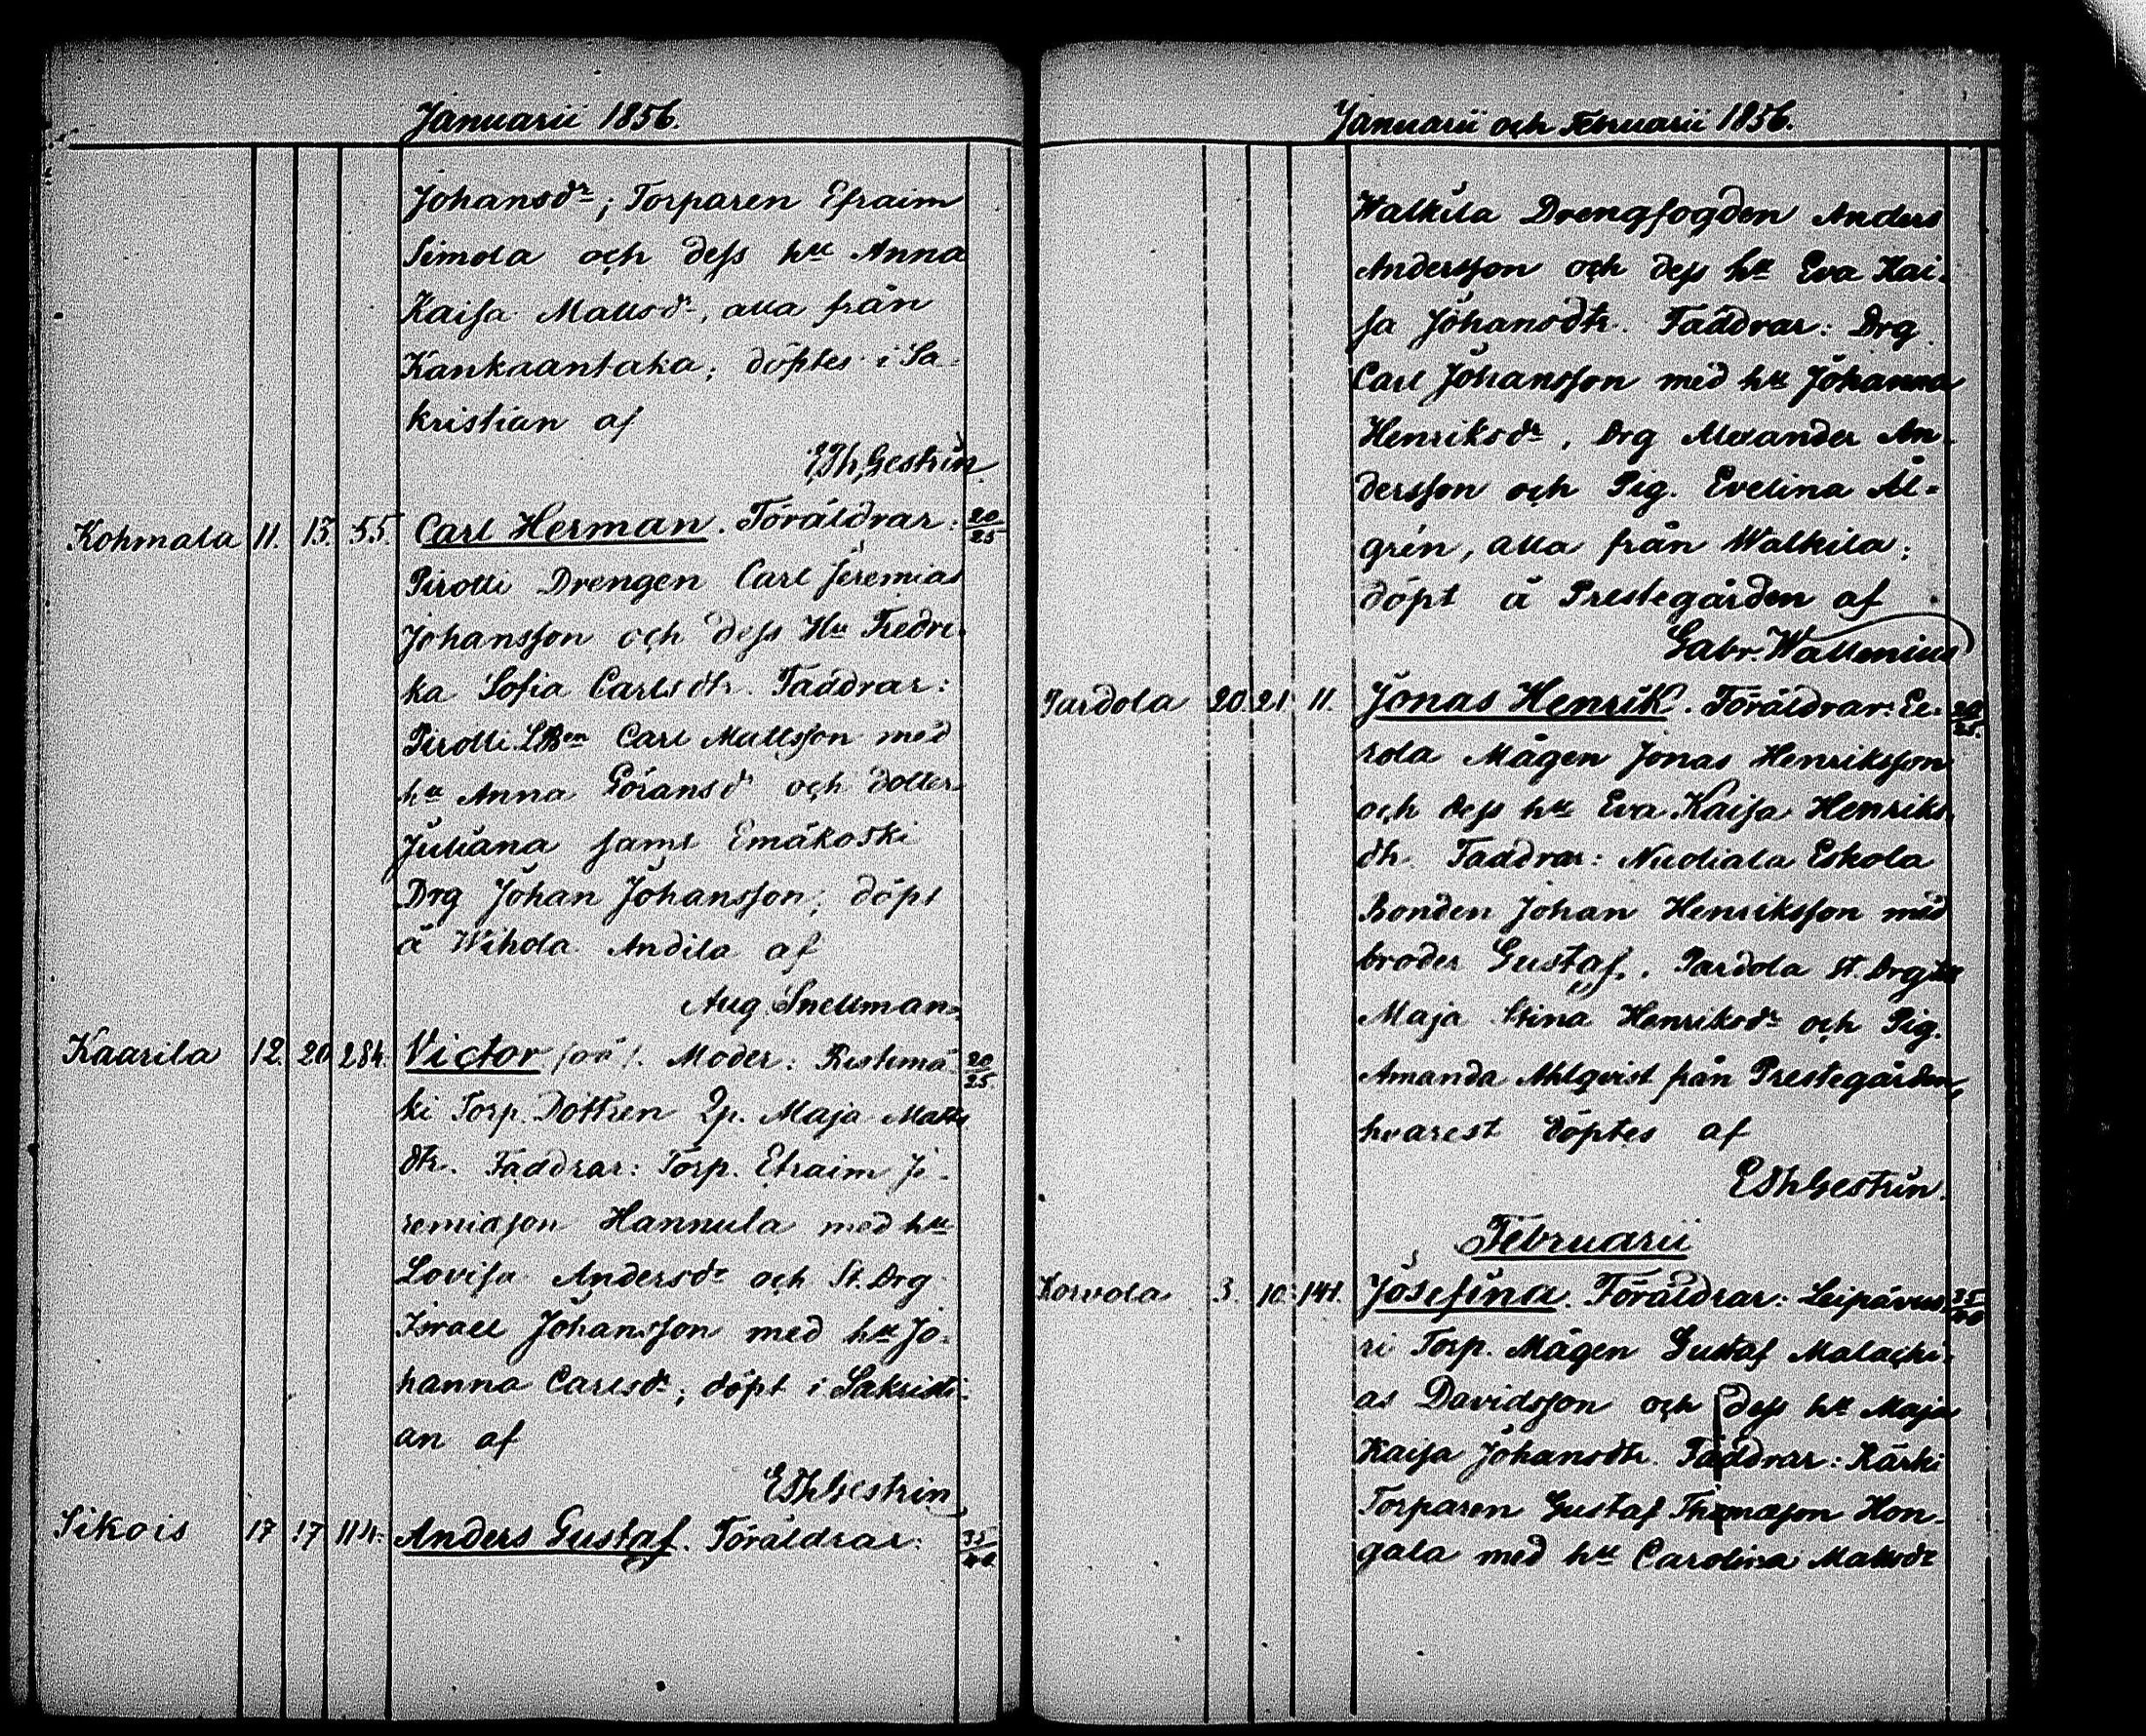 Januarii 1856.
Johansdr; Torparen Efraim
Simola och dess hu Anna
Kaisa Mattsdr, alla från
Kankaantaka; döptes i Sa-
kristian af
E Th Gestrin
Kohmala 11. 13. 55. Carl Herman. Föräldrar: 20/25
Pirolli Drengen Carl Jeremias
Johansson och dess Hu Fredri-
ka Sofia Carlsdtr. Faddrar:
Pirolli LBen Carl Mattsson med
hu Anna Göransdr och dotter
Juliana samt Emäkoski
Drg Johan Johansson; döpt
å Wihola Andila af
Aug. Snellman.
Kaarila 12. 20. 284. Victor /oä/. Moder: Ristimä- 20/25
ki Torp. Dottren Qp. Maja Matts
dtr. Faddrar: Torp. Efraim Je-
remiasson Hannula med hu
Lovisa Andersdr och St. Drg
Israel Johansson med hu Jo-
hanna Carlsdr; döpt i Sakristi-
an af
E Th Gestrin
Sikois 17 17 114. Anders Gustaf. Föräldrar: 35/40
Januarii och Februarii 1856.
Walkila Drengfogden Anders
Andersson och dess hu Eva Kai-
sa Johansdtr. Faddrar: Drg
Carl Johansson med hu Johanna
Henriksdr, Drg Alexander An-
dersson och Pig. Evelina Äl-
grén, alla från Walkila;
döpt å Prestegården af
Gabr. Wallenius
Pardola 20. 21. 11. Jonas Henrik. Föräldrar: Ee- 20/25.
rola Mågen Jonas Henriksson
och dess hu Eva Kaisa Henriks
dtr. Faddrar: Nudiala Eskola
Bonden Johan Henriksson med
broder Gustaf, Pardola st. Drg hu
Maja Stina Henriksdr och Pig.
Amanda Ahlqvist från Prestegården,
hvarest döptes af
E Th Gestrin.
Februarii
Korvola 3. 10. 141. Josefina. Föräldrar: Leipävuo- 35/40
ri Torp. Mågen Gustaf Malachi-
as Davidsson och dess hu Maja
Kaisa Johansdtr. Faddrar: Kärki
Torparen Gustaf Thomasson Hon-
gala med hu Carolina Mattsdr